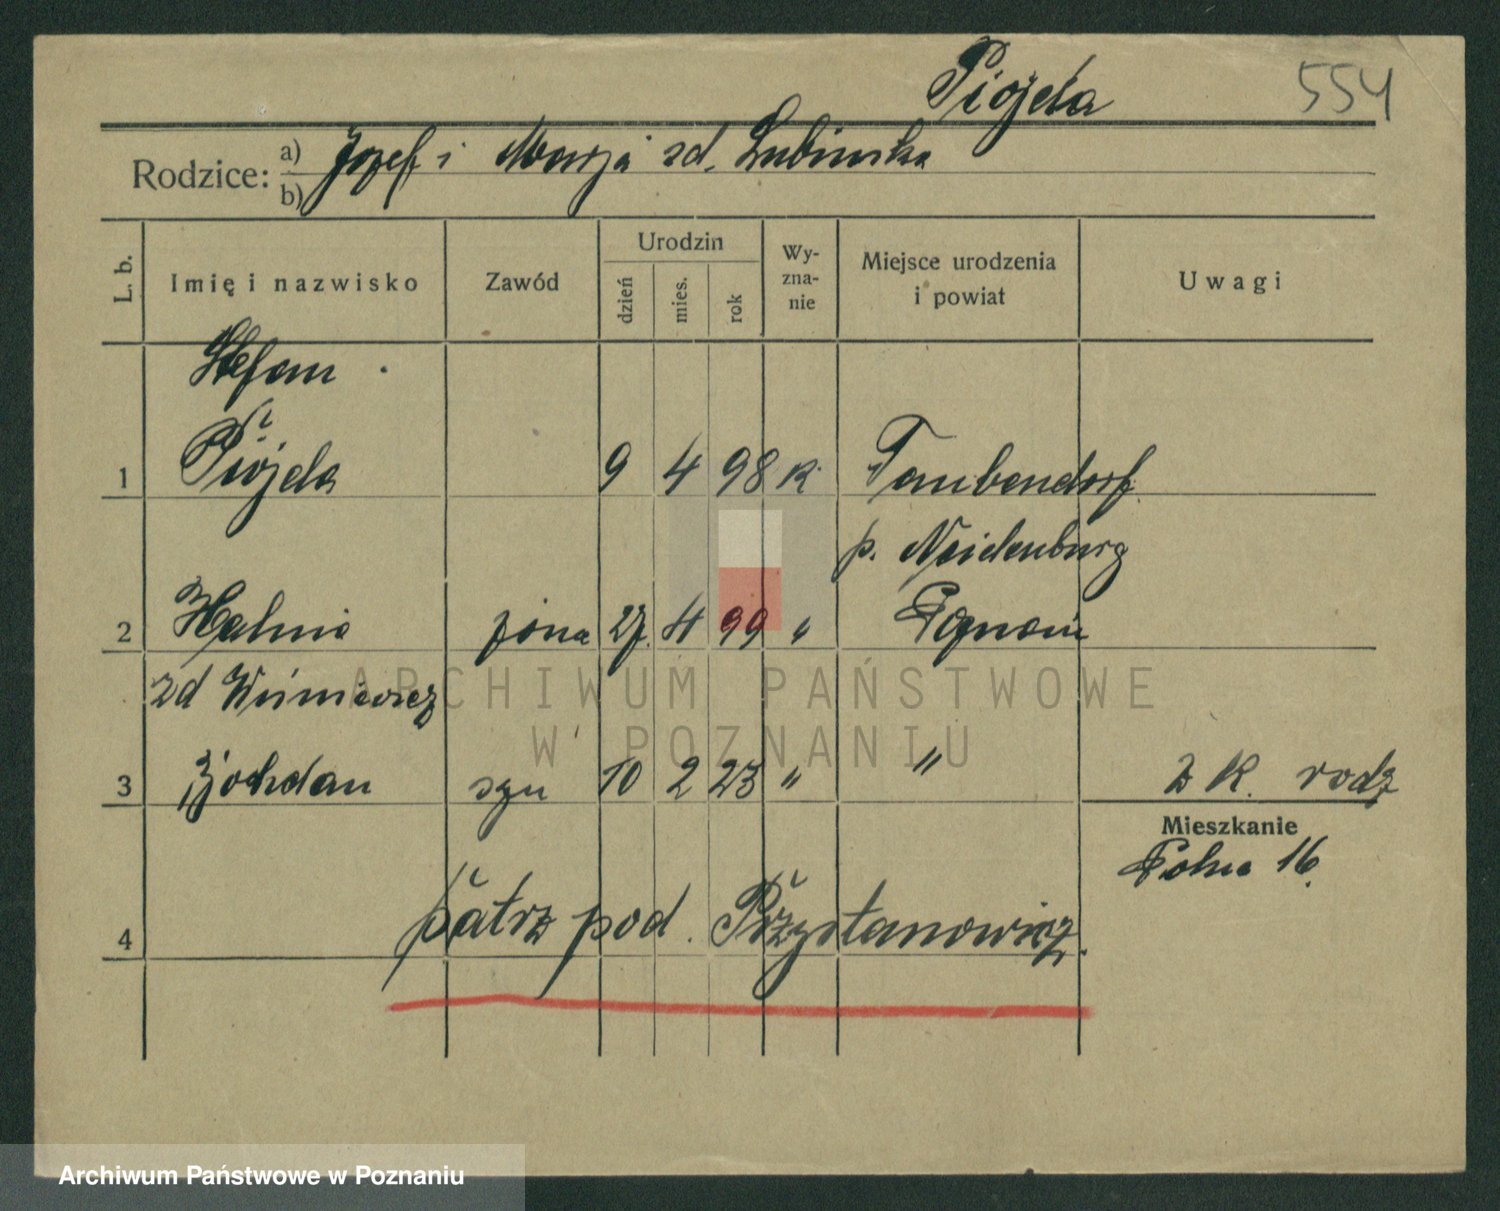 Piojda 554
Rodzice: a) Józef i Marja zd. Lubinska
b)
L. b. Imię i nazwisko Zawód Urodzin dzień mies. rok Wy-zna-nie Miejsce urodzenia i powiat Uwagi
Stefan
1 Piojda 9 4 98 k. Taubendorf
p. Neidenburg
2 Halina żona 27. 4 99 " Poznań
zd Wiśniewicz
3 Bohdan syn 10 2 23 " " 2 K. rodz
Mieszkanie
Polna 16.
4 patrz pod. Przystanowicz.
ARCHIWUM PAŃSTWOWE
W POZNANIU
Archiwum Państwowe w Poznaniu